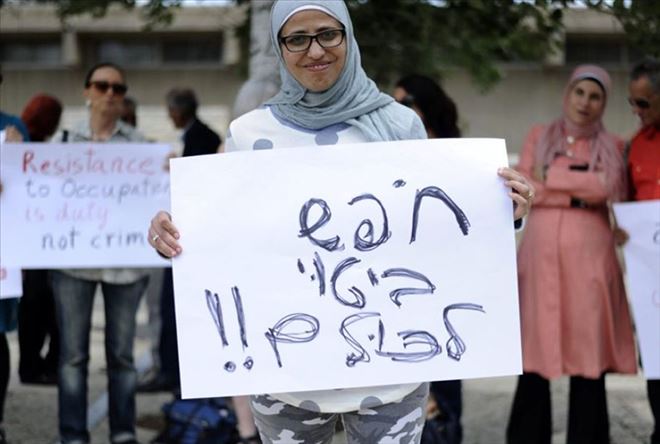 חופש
ביטוי
לכולם!!
Resistance
to Occupaten
is duty
not crim